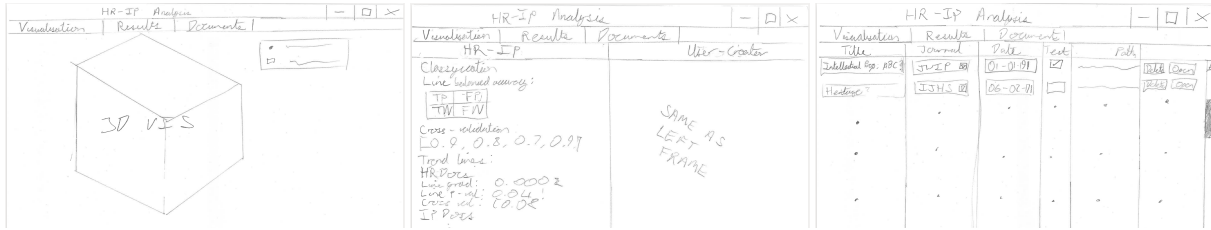 HR-IP Analysis
Visualisation Results Documents
3D VIS
HR-IP Analysis
Visualisation Results Documents
HR-IP
Classification
Line balanced accuracy:
TP FP
TN FN
Cross-validation
[0.9, 0.8, 0.7, 0.9]
Trend lines:
HR Docs
Line grad: 0.0002
Line P-val: 0.04
Cross val:
IP Docs
User-Creator
SAME AS
LEFT
FRAME
HR-IP Analysis
Visualisation Results Documents
Title Journal Date Test Path
Intellectual Exp. ABC JWIP 01-01-91 Delete Open
Heritage IJHS 06-02-11 Delete Open